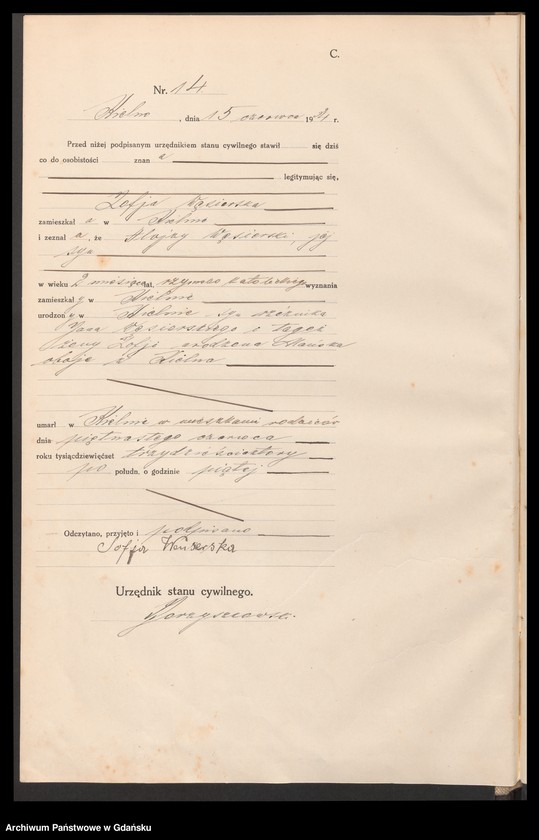 C.
Nr. 14
Kielno, dnia 15 czerwca 1931 r.
Przed niżej podpisanym urzędnikiem stanu cywilnego stawił się dziś
co do osobistości znan a
legitymując się,
Zofja Wąsierska
zamieszkał a w Kielnie
i zeznał a, że Alojzy Wąsierski, jej
syn
w wieku 2 miesiące lat, rzymsko katolickiego wyznania
zamieszkał y w Kielnie
urodzon y w Kielnie syn rolnika
Jana Wąsierskiego i tegoż
żony Zofji urodzona
oboje z Kielna
umarł w Kielnie w mieszkaniu rodziców
dnia piętnastego czerwca
roku tysiącdziewięćset trzydzieści
po połudn. o godzinie piątej
Odczytano, przyjęto i podpisano
Sofja
Urzędnik stanu cywilnego.
Archiwum Państwowe w Gdańsku